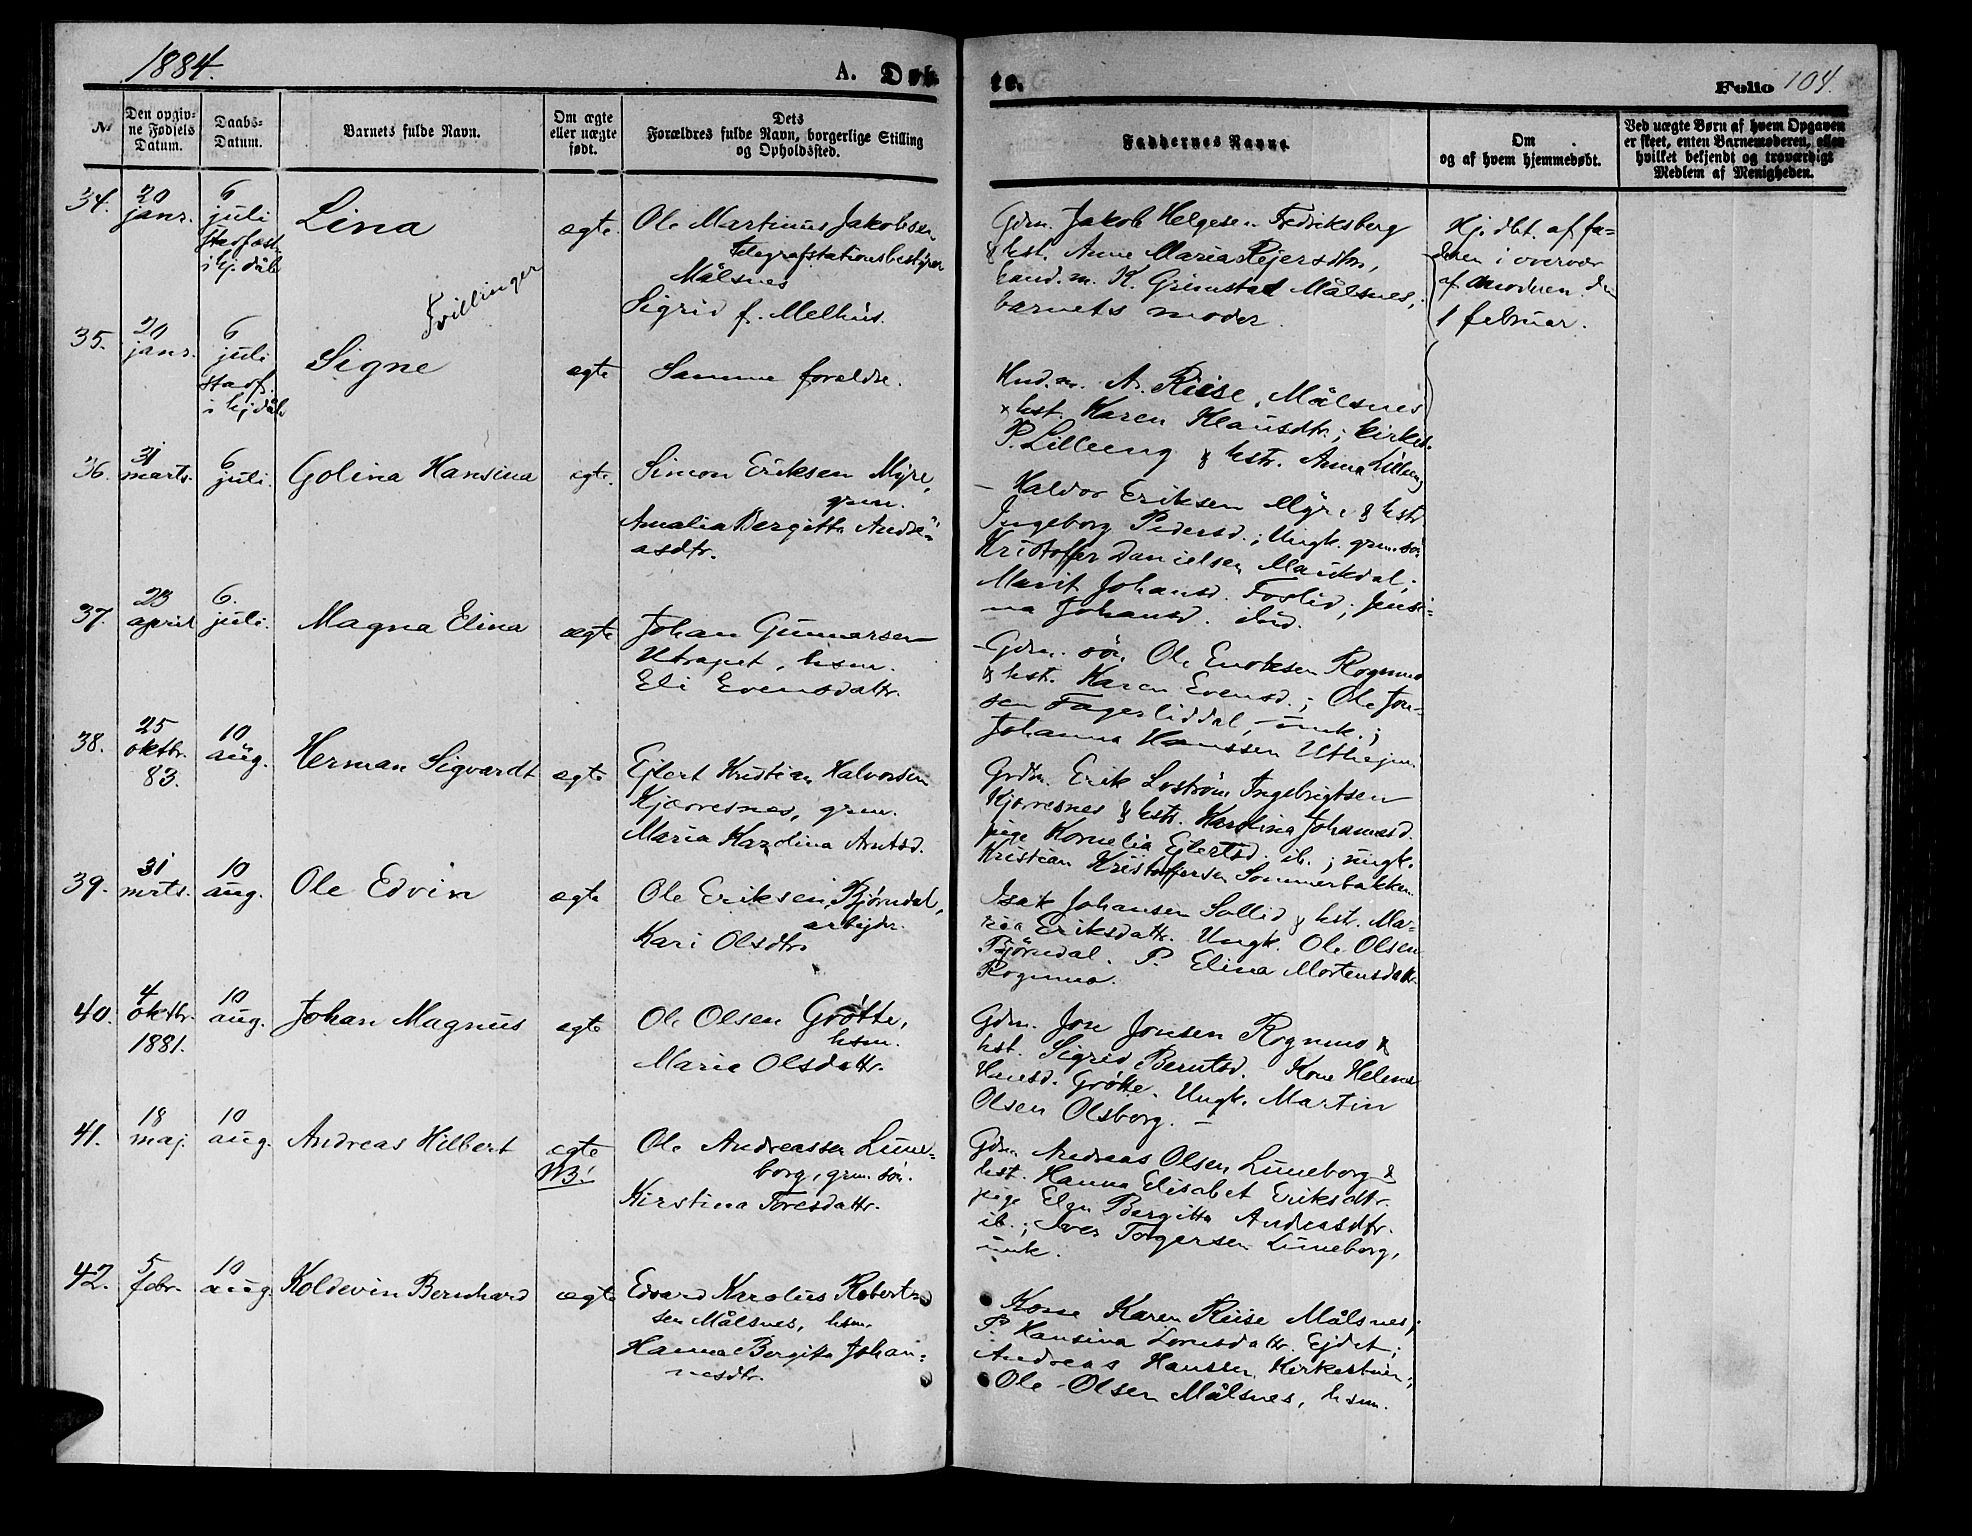 1884.
A. Døb
te.
Folio 104.
№
Den opgiv-
ne Fødsels
Datum.
Daabs-
Datum.
Barnets fulde Navn.
Om ægte
eller uægte
født.
Dets
Forældres fulde Navn, borgerlige Stilling
og Opholdssted.
Faddernes Navne.
Om
og af hvem hjemmedøbt.
Ved uægte Børn af hvem Opgaven
er skeet, enten Barnemoderen, eller
hvilket bekjendt og troværdigt
Medlem af Menigheden.
34.
20
janr.
6
juli
stadfæst.
i hj. dåb
Lina
Tvillinger
ægte
Ole Martinus Jakobsen,
telegrafstationsbestyrer
Målsnes
Sigrid f. Melhus.
Gdm. Jakob Helgesen Fredriksberg
& hst. Anne Maria Rejersdtr,
hand.m. K. Grimstad Målsnes,
barnets moder.
Hj. dbt. af fa-
deren i overvær
af moderen den
1 februar.
35.
20
janr.
6
juli
stadf.
i hj dåb
Signe
ægte
Samme foreldre.
Hnd.m. A. Riise, Målsnes
& hst. Karen Klausdtr; kirkes.
P. Lilleeng & hstr. Anna Lilleeng
36.
31
marts.
6
juli.
Golina Hansina
egte.
Simon Eriksen Myre,
grm.
Amalia Bergitte André-
asdtr.
- Haldor Eriksen Myre & hstr
Ingeborg Pedersd.; Ungk. grm. søn
Kristoffer Danielsen Maukdal;
Marit Johansd. Foslid; Jensi-
na Johansd. ibid.
37.
23
april
6.
juli.
Magna Elina
ægte
Johan Gunnarsen
Utrapet, hsm.
Eli Evensdattr.
- Gdm. søn. Ole Enoksen Rognmo
& hst. Karen Evensd.; Ole Jon-
sen Fagerliddal, unk.;
Johanna Hanssen Uthejm.
38.
25
oktbr.
83.
10
aug.
Herman Sigvardt
egte
Ejlert Kristian Halvorsen
Kjærresnes, grm.
Maria Karolina Arntsd.
Grdm. Erik Lostrøm Ingebrigtsen
Kjærresnes & hstr. Karolina Johannesd.
pige Kornelia Ejlertsd. ib.; ungk.
Kristian Kristoffersen Sommerbakken.
39.
31
mrts.
10
aug.
Ole Edvin
ægte
Ole Eriksen Bjørndal,
arbejdr.
Kari Olsdtr.
Isak Johansen Sollid & hst. Ma-
ria Eriksdattr. Ungk. Ole Olsen
Bjørndal. P. Elina Mortensdattr.
Rognmo.
40.
4
oktbr.
1881.
10
aug.
Johan Magnus
egte
Ole Olsen Grøtte,
hsm.
Marie Olsdattr.
Gdm. Jon Jonsen Rognmo &
hst. Sigrid Berntsd. Kone Helena
Hansd. Grøtte. Ungk. Martin
Olsen Olsborg. -
41.
18
maj.
10
aug.
Andreas Hilbert
ægte
NB!
Ole Andreassen Lune-
borg, grm. søn.
Kirstina Toresdattr.
Gdm. Andreas Olsen Luneborg &
hst. Hanna Elisabet Eriksdtr.
pige Elen Bergitte Andreasdtr.
ib.; Iver Torgersen Luneborg,
unk.
42.
5
febr.
10
aug.
Koldevin Bernhard
ægte
Edvard Karolus Roberts-
sen Målsnes, hsm.
Hanna Bergitte Johan-
nesdtr.
Kone Karen Riise Målsnes;
P. Hansina Lornsdattr. Ejdet;
Andreas Hanssen Kirkestuen;
Ole Olsen Målsnes, hsm.